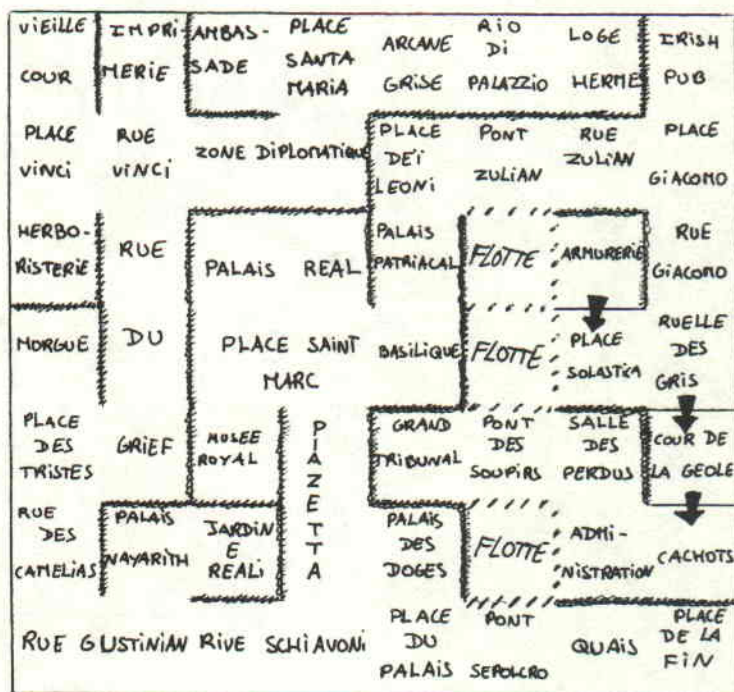 VIEILLE COUR
IMPRIMERIE
AMBAS-
SADE
PLACE
SANTA
MARIA
ARCANE
GRISE
RIO
DI
PALAZZIO
LOGE
HERMES
IRISH
PUB
PLACE
VINCI
RUE
VINCI
ZONE DIPLOMATIQUE
PLACE
DEÏ
LEONI
PONT
ZULIAN
RUE
ZULIAN
PLACE
GIACOMO
HERBO-
RISTERIE
RUE
DU
GRIEF
PALAIS REAL
PALAIS
PATRIACAL
FLOTTE
ARMURERIE
RUE
GIACOMO
MORGUE
PLACE SAINT
MARC
BASILIQUE
FLOTTE
PLACE
SOLASTICA
RUELLE
DES
GRIS
PLACE
DES
TRISTES
MUSEE
ROYAL
PIAZETTA
GRAND
TRIBUNAL
PONT
DES
SOUPIRS
SALLE
DES
PERDUS
COUR DE
LA GEOLE
RUE
DES
CAMELIAS
PALAIS
NAYARITH
JARDIN
E
REALI
PALAIS
DES
DOGES
FLOTTE
ADMI-
NISTRATION
CACHOTS
RUE GUSTINIAN
RIVE SCHIAVONI
PLACE
DU
PALAIS
PONT
SEPOLCRO
QUAIS
PLACE
DE LA
FIN